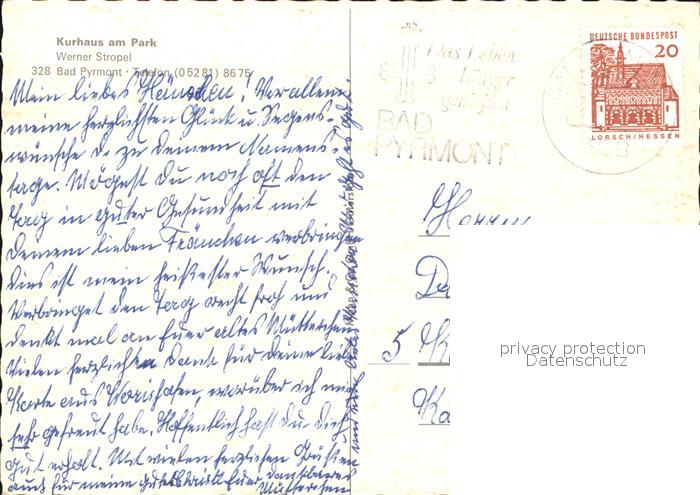 Kurhaus am Park
Werner Stropel
328 Bad Pyrmont · Telefon (0 52 81) 86 75
Mein liebes Hänschen! Vor allem
meine herzlichsten Glück u. Segens-
wünsche Dir zu Deinem Namens-
tage. Mögest Du noch oft den
Tag in guter Gesundheit mit
Deinem lieben Fränchen verbringen
dies ist mein heißester Wunsch.
Verbringet den Tag recht froh und
denkt mal an Euer altes Mütterchen
Vielen herzlichen Dank für Deine liebe
Karte aus Wörishofen, worüber ich mich
sehr gefreut habe. Hoffentlich hast Du Dich
gut erholt. Mit vielen herzlichen Grüßen
auch für meine Euer dankbares
Mütterchen
Das Leben
länger
genießen
BAD
PYRMONT
DEUTSCHE BUNDESPOST
20
LORSCH/HESSEN
Herrn
5 K
privacy protection
Datenschutz